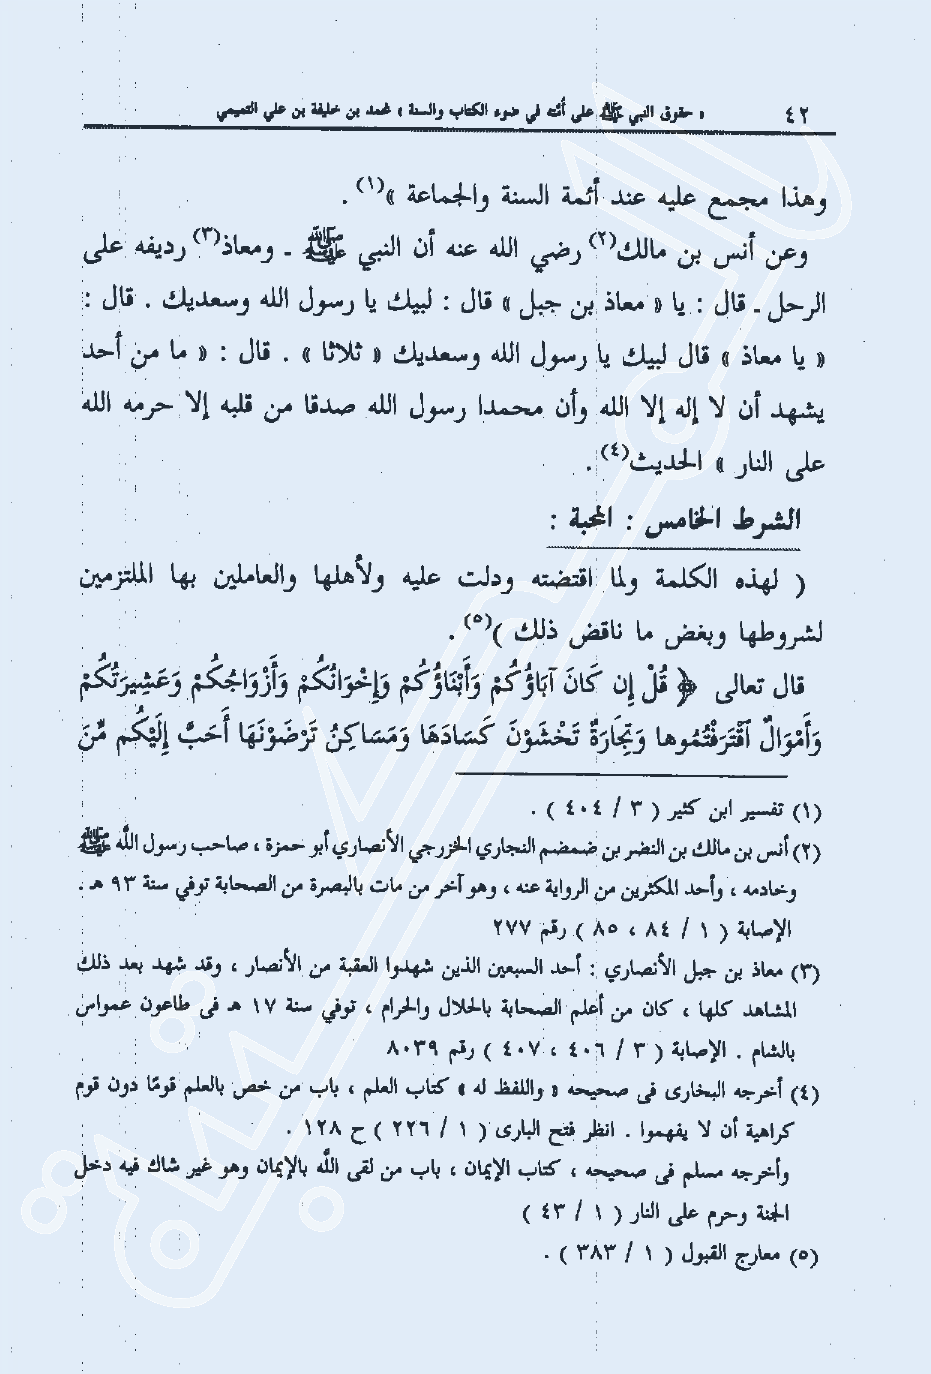 ٤٢ « حقوق النبي ﷺ على أمته في ضوء الكتاب والسنة » لمحمد بن خليفة بن علي التميمي
وهذا مجمع عليه عند أئمة السنة والجماعة »(١) .
وعن أنس بن مالك(٢) رضي الله عنه أن النبي ﷺ ـ ومعاذ(٣) رديفه على
الرحل ـ قال : يا « معاذ بن جبل » قال : لبيك يا رسول الله وسعديك . قال :
« يا معاذ » قال لبيك يا رسول الله وسعديك « ثلاثا » . قال : « ما من أحد
يشهد أن لا إله إلا الله وأن محمدا رسول الله صدقا من قلبه إلا حرمه الله
على النار » الحديث(٤) .
الشرط الخامس : المحبة :
( لهذه الكلمة ولما اقتضته ودلت عليه ولأهلها والعاملين بها الملتزمين
لشروطها وبغض ما ناقض ذلك )(٥) .
قال تعالى ﴿ قُلْ إِن كَانَ آبَاؤُكُمْ وَأَبْنَاؤُكُمْ وَإِخْوَانُكُمْ وَأَزْوَاجُكُمْ وَعَشِيرَتُكُمْ
وَأَمْوَالٌ ٱقْتَرَفْتُمُوها وَتِجَارَةٌ تَخْشَوْنَ كَسَادَهَا وَمَسَاكِنُ تَرْضَوْنَهَا أَحَبَّ إِلَيْكُم مِّنَ
(١) تفسير ابن كثير ( ٣ / ٤٠٤ ) .
(٢) أنس بن مالك بن النضر بن ضمضم النجاري الخزرجي الأنصاري أبو حمزة ، صاحب رسول اللَّه ﷺ
وخادمه ، وأحد المكثرين من الرواية عنه ، وهو آخر من مات بالبصرة من الصحابة توفي سنة ٩٣ هـ .
الإصابة ( ١ / ٨٤ ، ٨٥ ) رقم ٢٧٧
(٣) معاذ بن جبل الأنصاري : أحد السبعين الذين شهدوا العقبة من الأنصار ، وقد شهد بعد ذلك
المشاهد كلها ، كان من أعلم الصحابة بالحلال والحرام ، توفي سنة ١٧ هـ فى طاعون عمواس
بالشام . الإصابة ( ٣ / ٤٠٦ ، ٤٠٧ ) رقم ٨٠٣٩
(٤) أخرجه البخارى فى صحيحه « واللفظ له » كتاب العلم ، باب من خص بالعلم قومًا دون قوم
كراهية أن لا يفهموا . انظر فتح البارى ( ١ / ٢٢٦ ) ح ١٢٨ .
وأخرجه مسلم فى صحيحه ، كتاب الإيمان ، باب من لقى اللَّه بالإيمان وهو غير شاك فيه دخل
الجنة وحرم على النار ( ١ / ٤٣ )
(٥) معارج القبول ( ١ / ٣٨٣ ) .